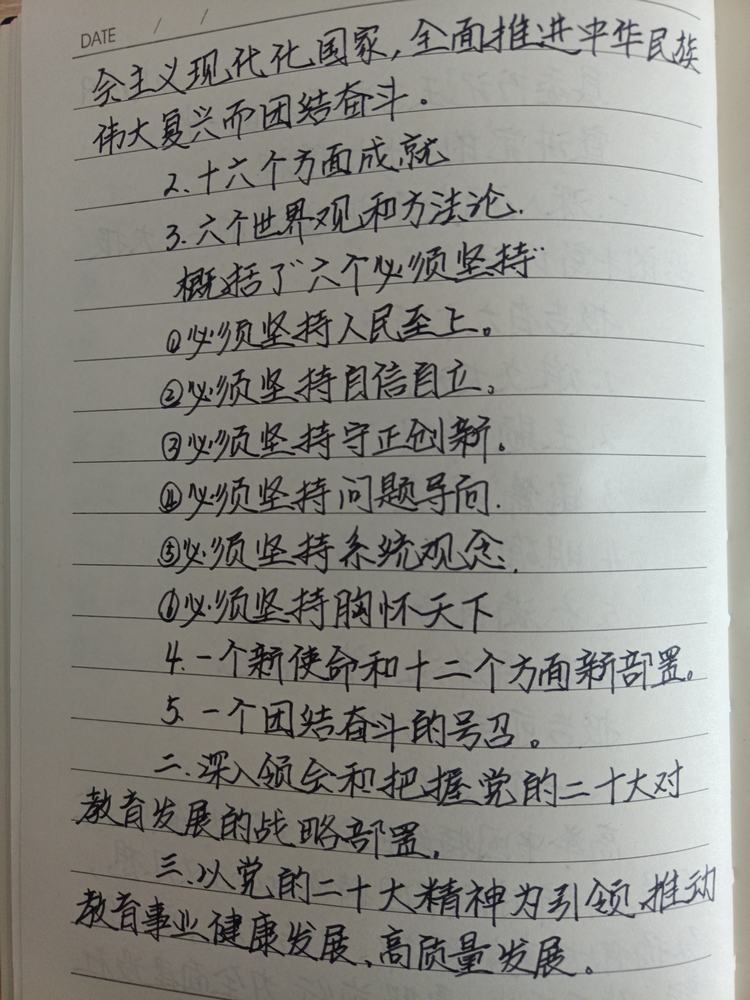 DATE / /
会主义现代化国家,全面推进中华民族
伟大复兴而团结奋斗。
2.十六个方面成就
3.六个世界观和方法论.
概括了"六个必须坚持"
①必须坚持人民至上。
②必须坚持自信自立。
③必须坚持守正创新。
④必须坚持问题导向.
⑤必须坚持系统观念.
⑥必须坚持胸怀天下
4.一个新使命和十二个方面新部署。
5.一个团结奋斗的号召。
二.深入领会和把握党的二十大对
教育发展的战略部署.
三.以党的二十大精神为引领.推动
教育事业健康发展、高质量发展。